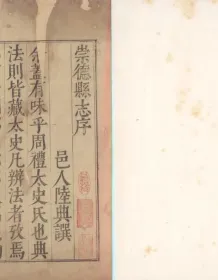 崇德縣志序
邑人陸典譔
仝蓋有味乎周禮太史氏也典
法則皆藏太史凡辨法者攷焉